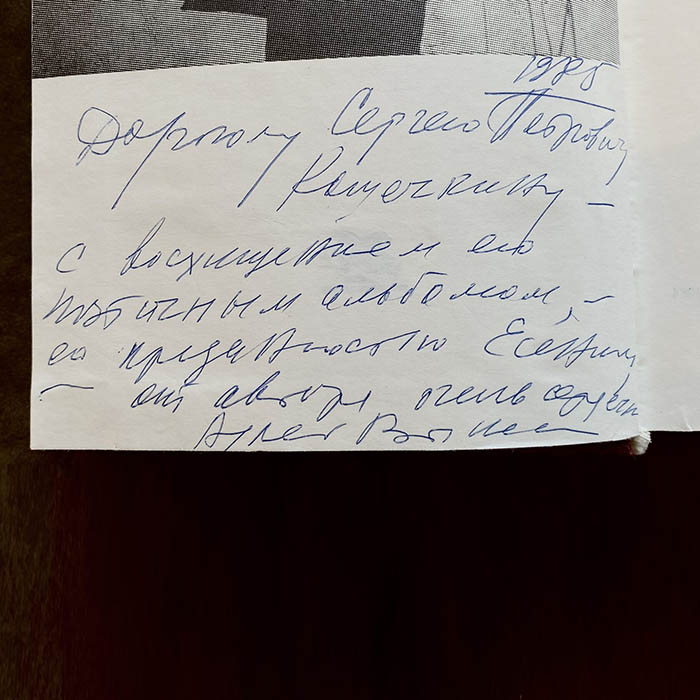 1985
Дорогому Сергею Петровичу
Кошечкину –
с восхищением его
поэтичным альбомом, –
его преданностью Есенину
– от автора очень сердечно
Андрей Вознес